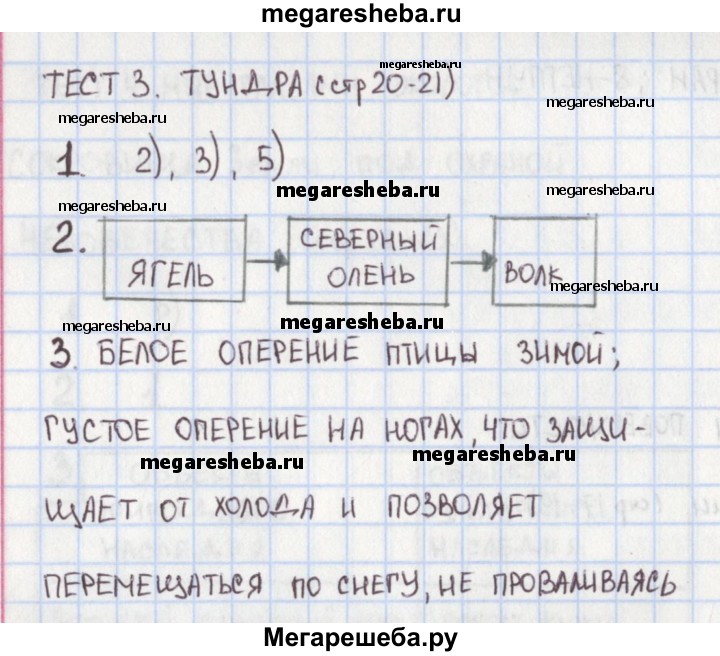 megaresheba.ru
megaresheba.ru
ТЕСТ 3. ТУНДРА (стр 20-21)
megaresheba.ru
megaresheba.ru
1. 2), 3), 5)
megaresheba.ru
megaresheba.ru
2. ЯГЕЛЬ СЕВЕРНЫЙ ОЛЕНЬ ВОЛК
megaresheba.ru
megaresheba.ru
megaresheba.ru
3. БЕЛОЕ ОПЕРЕНИЕ ПТИЦЫ ЗИМОЙ;
megaresheba.ru
ГУСТОЕ ОПЕРЕНИЕ НА НОГАХ, ЧТО ЗАЩИ-
megaresheba.ru
megaresheba.ru
ЩАЕТ ОТ ХОЛОДА И ПОЗВОЛЯЕТ
ПЕРЕМЕЩАТЬСЯ ПО СНЕГУ, НЕ ПРОВАЛИВАЯСЬ
megaresheba.ru
Мегарешеба.ру